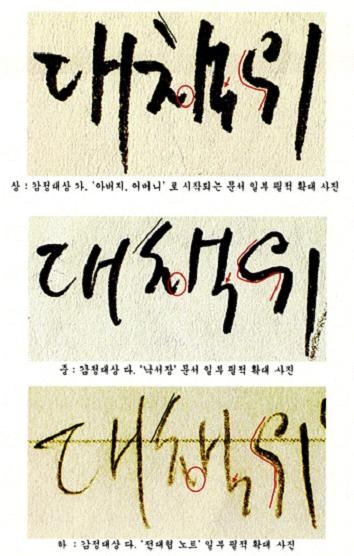 대책위
상 : 감정대상 가. '아버지, 어머니' 로 시작되는 문서 일부 필적 확대 사진
대책위
중 : 감정대상 다. '낙서장' 문서 일부 필적 확대 사진
대책위
하 : 감정대상 다. '전대협 노트' 일부 필적 확대 사진